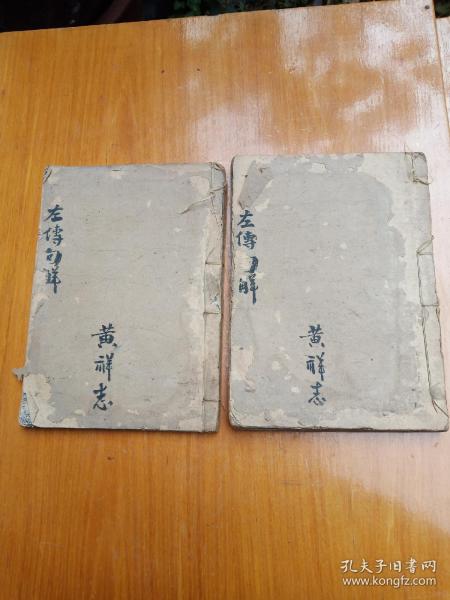 左傳句解
黃祥志
左傳句解
黃祥志
孔夫子旧书网
www.kongfz.com